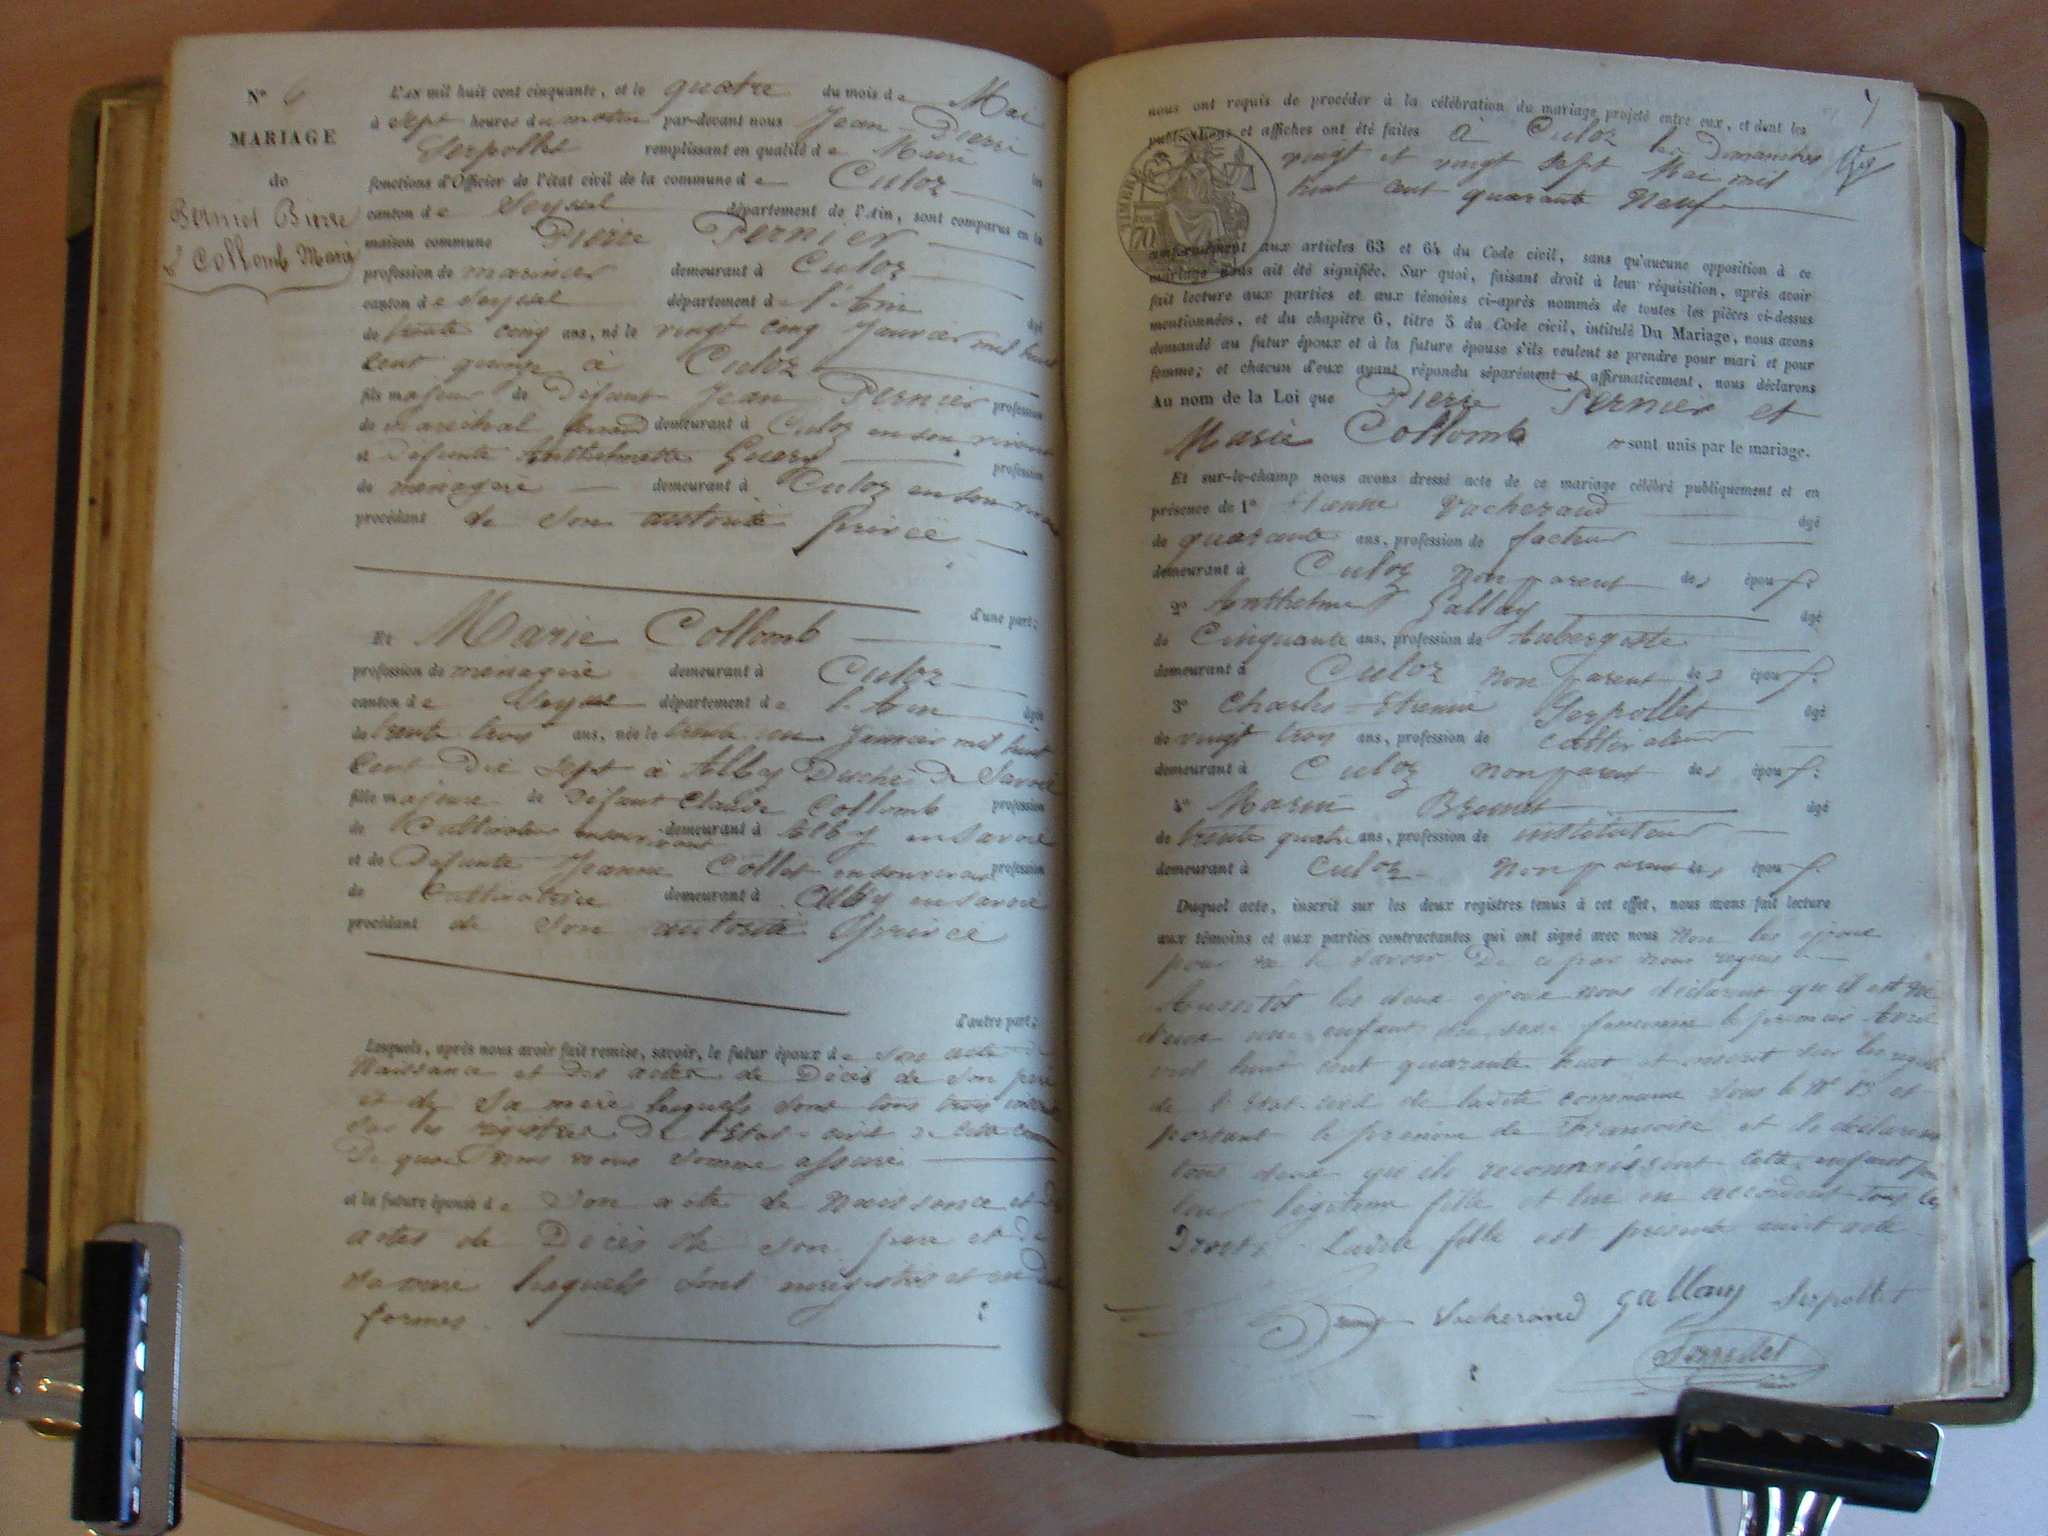 N° 6
MARIAGE
de
Pernier Pierre
& Collomb Marie
L'AN mil huit cent cinquante, et le quatre du mois de Mai
à sept heures du matin par-devant nous Jean-Pierre
Serpollet remplissant en qualité de Maire les
fonctions d'Officier de l'état civil de la commune de Culoz
canton de Seyssel département de l'Ain, sont comparus en la
maison commune Pierre Pernier
profession de marinier demeurant à Culoz
canton de Seyssel département de l'Ain âgé
de trente cinq ans, né le vingt cinq Janvier mil huit
cent quinze à Culoz
fils majeur de Défunt Jean Pernier profession
de maréchal ferrand demeurant à Culoz en son vivant
et Défunte Anthelmette Guery profession
de menagère demeurant à Culoz en son vivant
procédant de son autorité privée
d'une part;
Et Marie Collomb
profession de menagère demeurant à Culoz
canton de Seyssel département de l'Ain âgée
de trente trois ans, née le trente un Janvier mil huit
Cent Dix sept à Alby Duché de Savoie
fille majeure de Défunt Claude Collomb profession
de Cultivateur en son vivant demeurant à Alby en Savoie
et de Defunte Jeanne Collet en son vivant profession
de Cultivatrice demeurant à Alby en Savoie
procédant de son autorité privée
d'autre part;
Lesquels, après nous avoir fait remise, savoir, le futur époux de son acte de
Naissance et des actes de Décès de son père
et de sa mère lesquels sont tous trois
sur les registres de l'Etat-civil de cette
De quoi nous nous somme assuré
et la future épouse de Son acte de Naissance et des
actes de Décès de son père et de
sa mère lesquels sont enregistrés et en due
formes.
7
nous ont requis de procéder à la célébration du mariage projeté entre eux, et dont les
publications et affiches ont été faites à Culoz les Dimanches
vingt et vingt sept Mai mil
huit cent quarante Neuf
TIMBRE
conformément aux articles 63 et 64 du Code civil, sans qu'aucune opposition à ce
mariage nous ait été signifiée. Sur quoi, faisant droit à leur réquisition, après avoir
fait lecture aux parties et aux témoins ci-après nommés de toutes les pièces ci-dessus
mentionnées, et du chapitre 6, titre 5 du Code civil, intitulé Du Mariage, nous avons
demandé au futur époux et à la future épouse s'ils veulent se prendre pour mari et pour
femme; et chacun d'eux ayant répondu séparément et affirmativement, nous déclarons
Au nom de la Loi que Pierre Pernier et
Marie Collomb sont unis par le mariage.
Et sur-le-champ nous avons dressé acte de ce mariage célébré publiquement et en
présence de 1° Etienne Vacherand âgé
de quarante ans, profession de facteur
demeurant à Culoz non parent des époux
2° Anthelme Gallay âgé
de Cinquante ans, profession de Aubergiste
demeurant à Culoz non parent des époux
3° Charles-Etienne Serpollet âgé
de vingt trois ans, profession de cultivateur
demeurant à Culoz non parent des époux
4° Marin Brunet âgé
de trente quatre ans, profession de instituteur
demeurant à Culoz non parent des époux
Duquel acte, inscrit sur les deux registres tenus à cet effet, nous avons fait lecture
aux témoins et aux parties contractantes qui ont signé avec nous Non les époux
pour ne le savoir De ce par nous requis
Aussitôt les deux époux nous déclarent qu'il est né
d'eux une enfant du sexe féminin le premier Avril
mil huit cent quarante huit et inscrit sur les
de l'Etat-civil de ladite commune sous le N° 13 et
portant le prénom de Françoise et ils déclarent
tous deux qu'ils reconnaissent cette enfant pour
leur légitime fille et lui en accordent tous les
Droits. Ladite fille est présente audit acte
Vacherand Gallay Serpollet
Serpollet